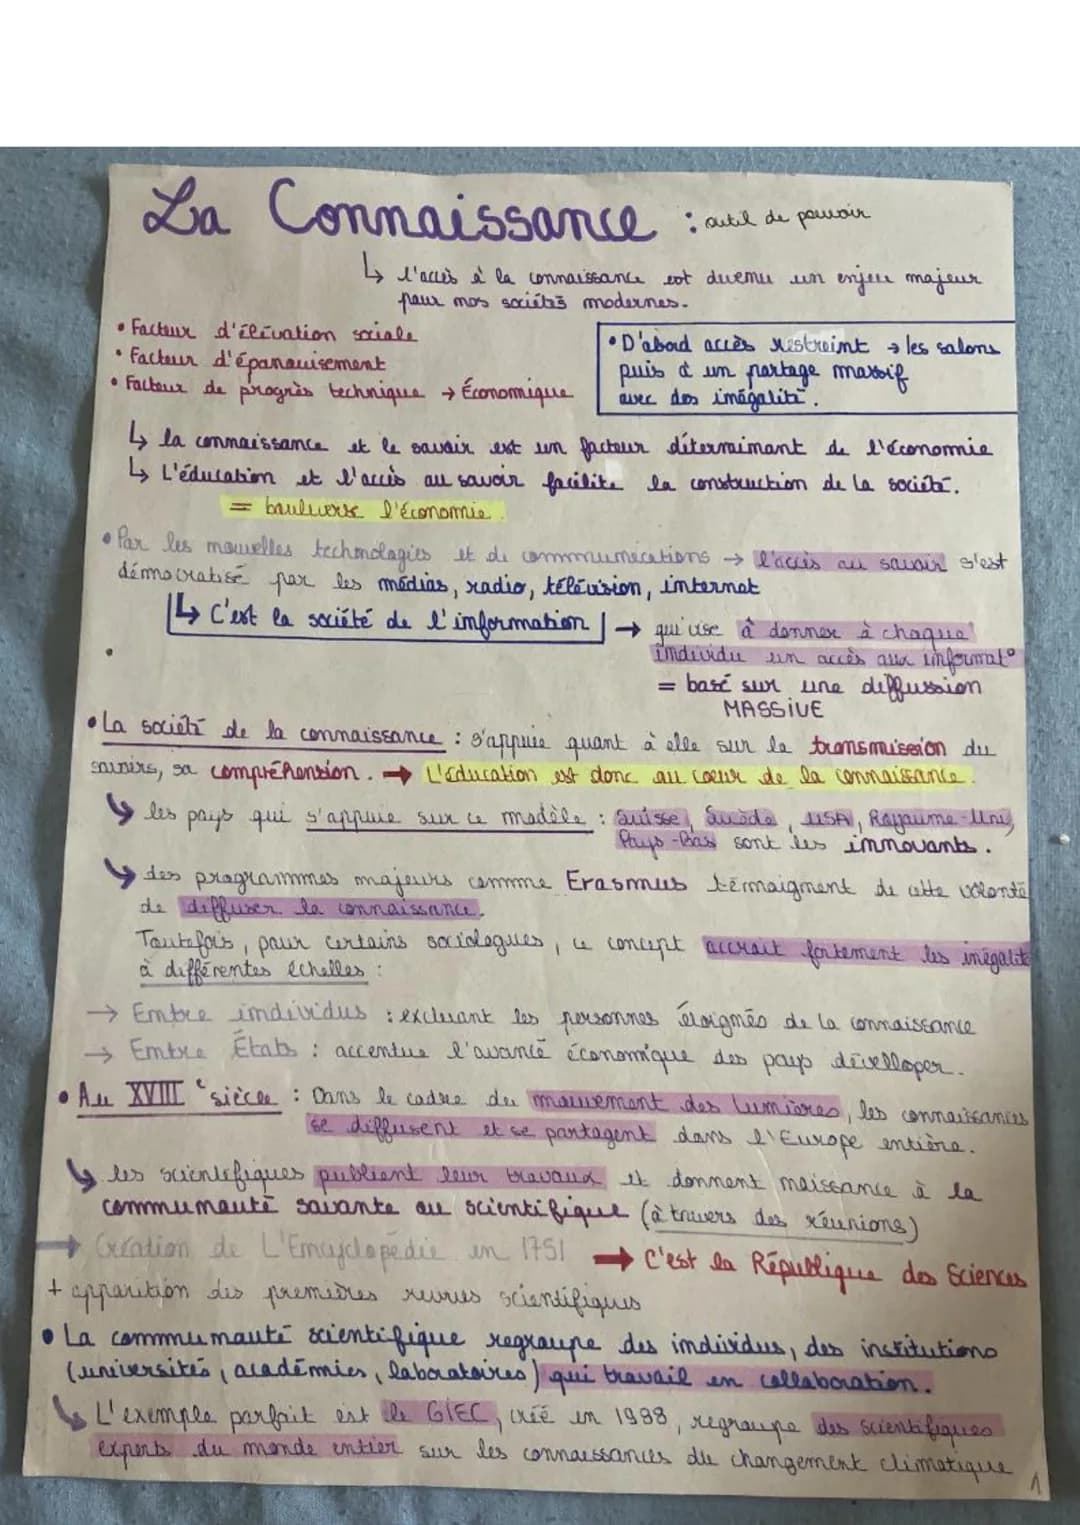 La Connaissance : outil de pouvoir
↳ l'accès à la connaissance est devenu un enjeu majeur
pour nos sociétés modernes.
• Facteur d'élévation sociale
• Facteur d'épanouisement
• Facteur de progrès technique → Économique
• D'abord accès restreint → les salons
puis à un partage massif
avec des inégalité.
↳ la connaissance et le savoir est un facteur déterminant de l'économie
↳ L'éducation et l'accès au savoir facilite la construction de la société.
= bouleverse l'économie.
• Par les nouvelles technologies et de communications → l'accès au savoir s'est
démocratisé par les médias, radio, télévision, internet
↳ C'est la société de l'information → qui vise à donner à chaque
individu un accès aux informat°
= basé sur une diffussion
MASSIVE
•
• La société de la connaissance : s'appuie quant à elle sur la transmission du
savoirs, sa compréhension. → L'éducation est donc au coeur de la connaissance.
↳ les pays qui s'appuie sur ce modèle : Suisse, Suède, USA, Royaume-Uni,
Pays-Bas sont les innovants.
↳ des programmes majeurs comme Erasmus témoignent de cette volonté
de diffuser la connaissance.
Toutefois, pour certains sociologues, ce concept accroit fortement les inégalité
à différentes échelles :
→ Entre individus : excluant les personnes éloignés de la connaissance
→ Entre États : accentue l'avancé économique des pays développer.
• Au XVIII e siècle : Dans le cadre du mouvement des Lumières, les connaissances
se diffusent et se partagent dans l'Europe entière.
↳ les scientifiques publient leur travaux et donnent naissance à la
communauté savante ou scientifique (à travers des réunions)
→ Création de L'Encyclopédie en 1751 → C'est la République des Sciences
+ apparition des premières revues scientifiques
• La communauté scientifique regroupe des individus, des institutions
(universités, académies, laboratoires) qui travail en collaboration.
↳ L'exemple parfait est le GIEC, créé en 1988, regroupe des scientifiques
experts du monde entier sur les connaissances du changement climatique
1